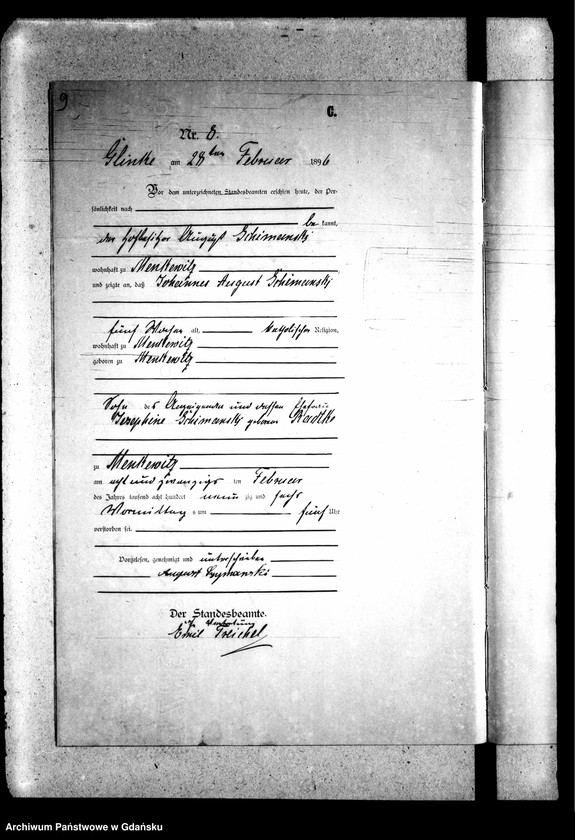 9
C.
Nr. 8.
Glinke am 28ten Februar 1896
Vor dem unterzeichneten Standesbeamten erschien heute, der Per-
sönlichkeit nach
be kannt,
der Hofbesitzer August Schimanski
wohnhaft zu Menkewitz
und zeigte an, daß Johannes August Schimanski
fünf Wochen alt, katholischer Religion,
wohnhaft zu Menkewitz
geboren zu Menkewitz
Sohn des Anzeigenden und dessen Ehefrau
Josephine Schimanski geborene Radtke
zu Menkewitz
am acht und zwanzigs ten Februar
des Jahres tausend acht hundert neun zig und sechs
Vormittag s um fünf Uhr
verstorben sei.
Vorgelesen, genehmigt und unterschrieben
August Szymanski
Der Standesbeamte.
In Vertretung
Emil Treichel
Archiwum Państwowe w Gdańsku